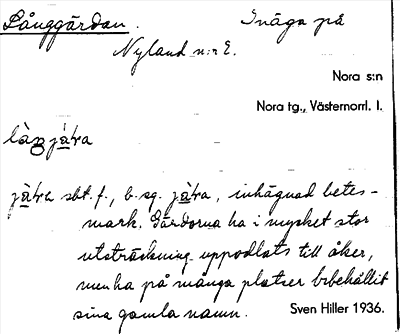 Långgärdan. Inäga på
Nyland n:r 2.
Nora s:n
Nora tg., Västernorrl. l.
jä̀ra sbt. f., b. sg. jä̀ra, inhägnad betes-
mark. Gärdorna ha i mycket stor
utsträckning uppodlats till åker,
men ha på många platser bibehållit
sina gamla namn. Sven Hiller 1936.